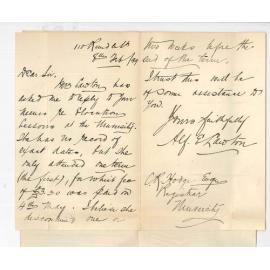 110 Rundle St
8th Feb
Dear Sir,
Mrs Lawton has
asked me to reply to your
re Elocution
Lessons at the University.
She has no record of
exact dates, but she
only attended one term
(the first), for which fee
of £3.3.0 was paid on
4th May. I believe she
discontinued one or
two weeks before the
end of the term.
I trust this will be
of some assistance to
you.
Yours faithfully
Alf E Lawton
C. R. Hodge Esq
Registrar
University